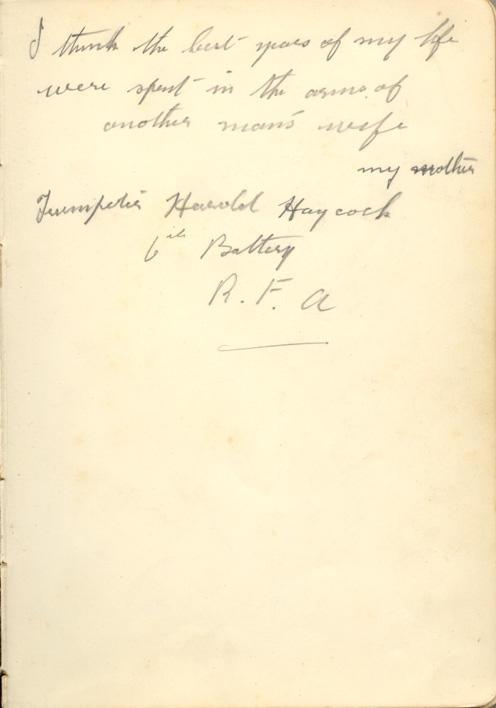 I think the best years of my life
were spent in the arms of
another man's wife
my mother
Trumpeter Harold Haycock
6th Battery
R. F. A